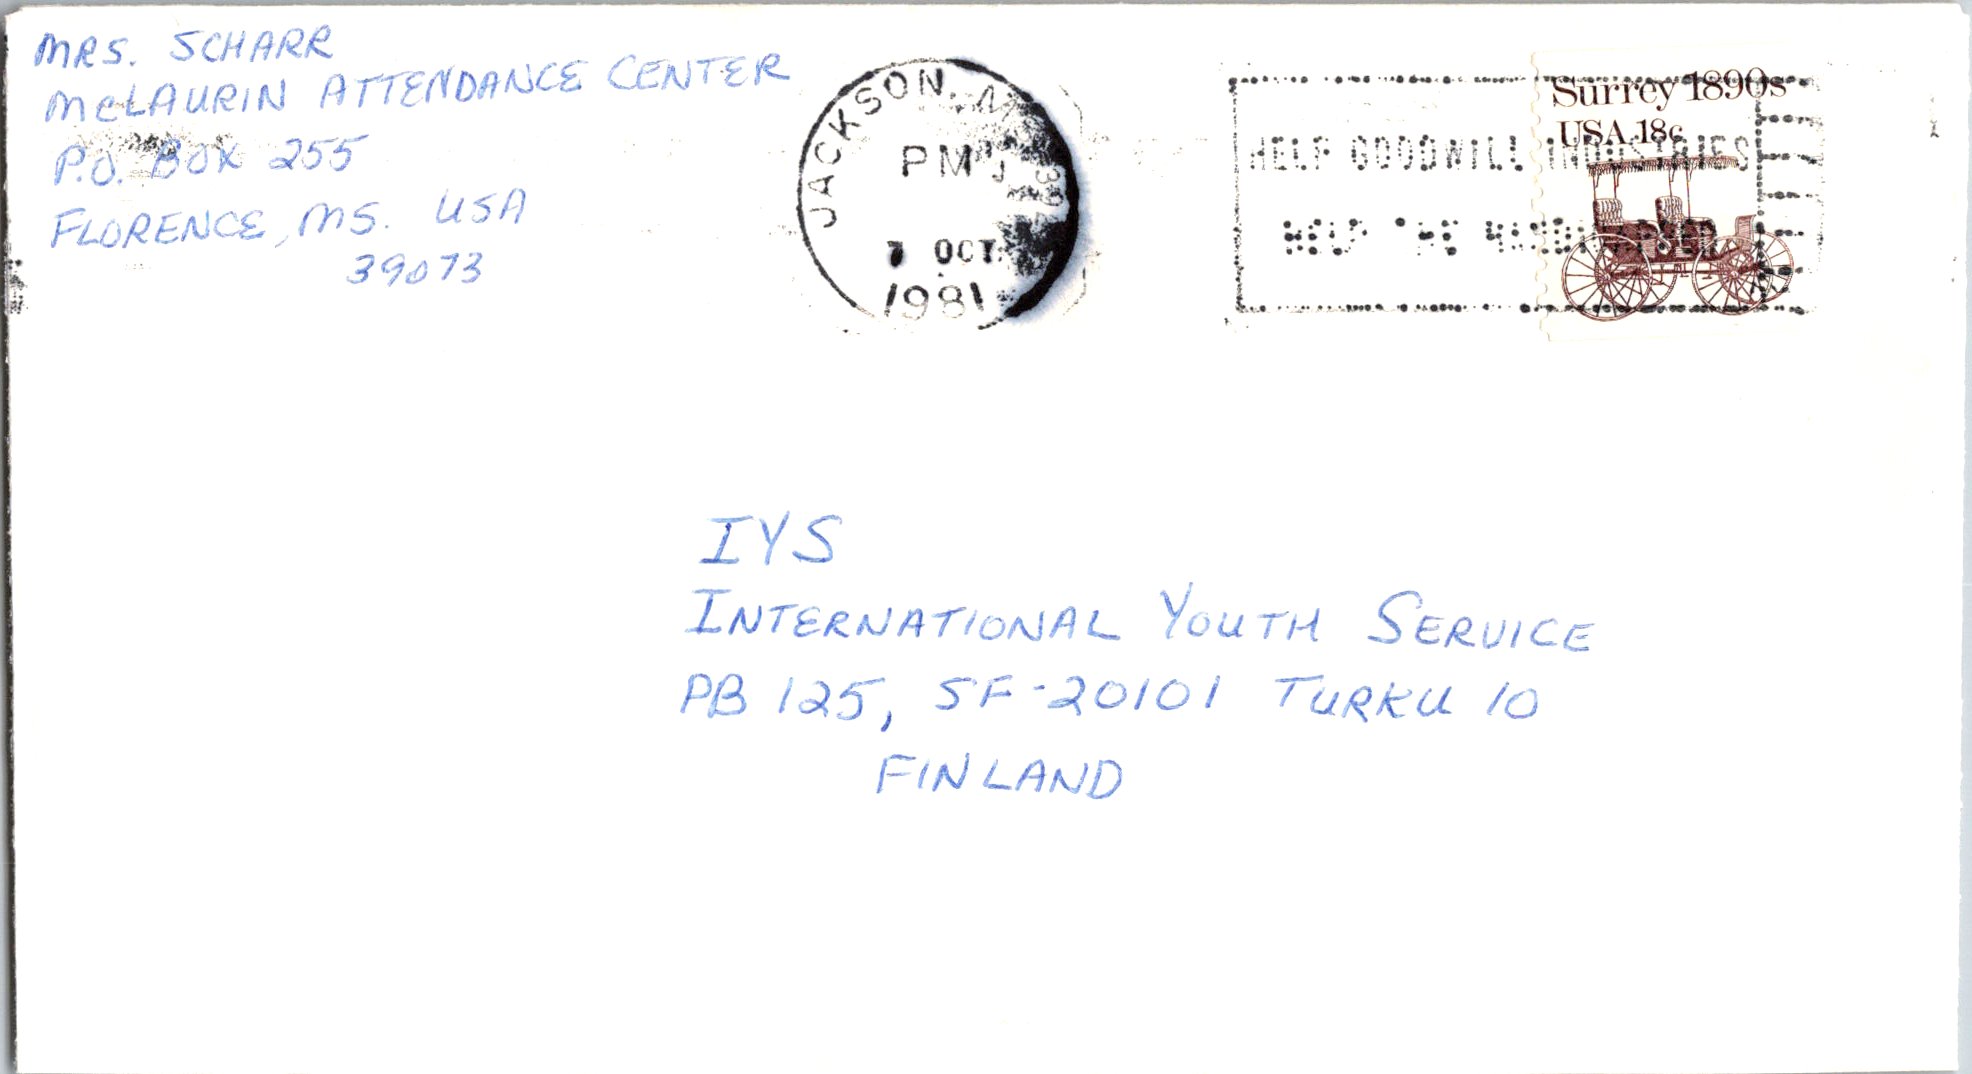 MRS. SCHARR
McLAURIN ATTENDANCE CENTER
P.O. BOX 255
FLORENCE, MS. USA
39073
JACKSON, M
PM
7 OCT
1981
HELP GOODWILL INDUSTRIES
HELP THE HANDICAPPED
Surrey 1890s
USA 18c
IYS
INTERNATIONAL YOUTH SERVICE
PB 125, SF-20101 TURKU 10
FINLAND